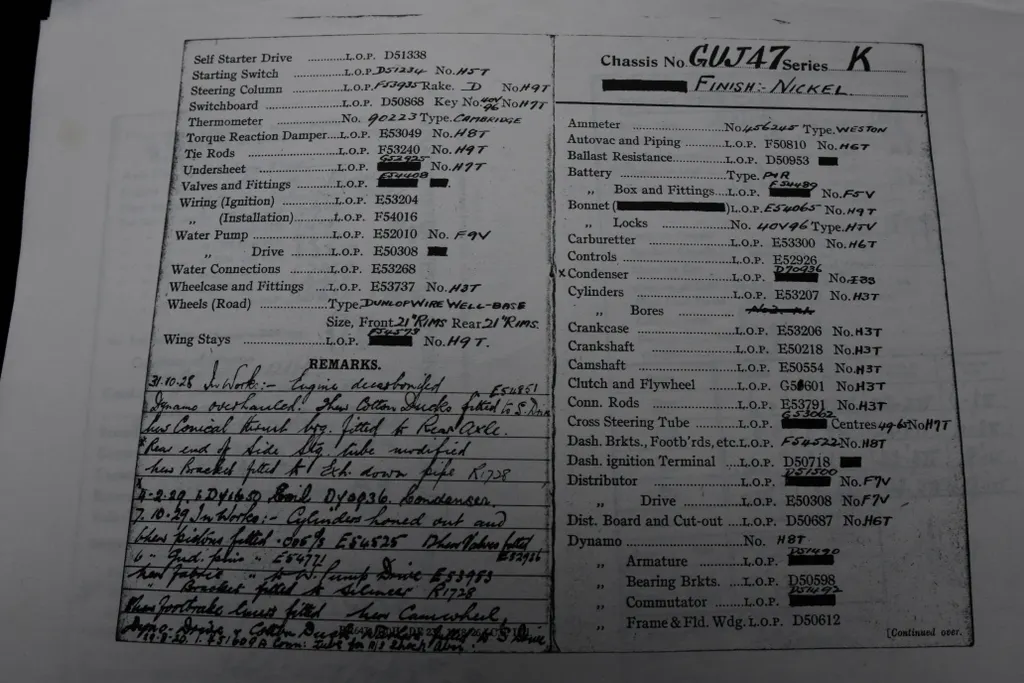 Self Starter Drive ............L.O.P. D51338
Starting Switch ............L.O.P. D51234 No. H5T
Steering Column ............L.O.P. F53935 Rake. D No H9T
Switchboard ............L.O.P. D50868 Key No 40V 96 No H7T
Thermometer ............No. 90223 Type. CAMBRIDGE
Torque Reaction Damper....L.O.P. E53049 No. H8T
Tie Rods ............L.O.P. F53240 No. H9T
Undersheet ............L.O.P. G52925 No. H7T
Valves and Fittings ............L.O.P. E54408
Wiring (Ignition) ............L.O.P. E53204
„ (Installation)............L.O.P. F54016
Water Pump ............L.O.P. E52010 No. F9V
„ Drive ............L.O.P. E50308
Water Connections ............L.O.P. E53268
Wheelcase and Fittings ....L.O.P. E53737 No. H3T
Wheels (Road) ............Type. DUNLOP WIRE WELL-BASE
Size, Front. 21" RIMS Rear. 21" RIMS.
Wing Stays ............L.O.P. F54573 No. H9T.
REMARKS.
31.10.28 In Works:- Engine decarbonised E54851
Dynamo overhauled. New Cotton Ducks fitted to S. Drive
new Conical thrust brg. fitted to Rear Axle.
Rear end of Side Stg. tube modified
new Bracket fitted to Exh. down pipe R1728
4-2-29. Coil D70936. Condenser.
7.10.29 In Works:- Cylinders honed out and
new pistons fitted .005"/s E54525 New Valves fitted E52936
" Gud. pins " E54771
new fabric " to W. Pump Drive E53953
" Bracket fitted to Silencer R1728
New footbrake liners fitted new Camwheel,
Dyno. Drive Cotton Duck fitted to S. Drive
Conn: tube for
Chassis No. GUJ47 Series K
FINISH:- NICKEL.
Ammeter ............No 456245 Type. WESTON
Autovac and Piping ............L.O.P. F50810 No. H6T
Ballast Resistance............L.O.P. D50953
Battery ............Type. P&R
„ Box and Fittings....L.O.P. E54489 No. F5V
Bonnet ( )L.O.P. E54065 No. H9T
„ Locks ............No. 40V96 Type. H7V
Carburetter ............L.O.P. E53300 No. H6T
Controls ............L.O.P. E52926
x Condenser ............L.O.P. D70936 No.
Cylinders ............L.O.P. E53207 No. H3T
„ Bores ............
Crankcase ............L.O.P. E53206 No. H3T
Crankshaft ............L.O.P. E50218 No. H3T
Camshaft ............L.O.P. E50554 No. H3T
Clutch and Flywheel ....L.O.P. G53601 No. H3T
Conn. Rods ............L.O.P. E53791 No. H3T
Cross Steering Tube ....L.O.P. G53062 Centres 49.65 No H9T
Dash. Brkts., Footb'rds, etc. L.O.P. F54522 No. H8T
Dash. ignition Terminal ....L.O.P. D50718
Distributor ............L.O.P. D51500 No. F7V
„ Drive ............L.O.P. E50308 No F7V
Dist. Board and Cut-out ....L.O.P. D50687 No. H6T
Dynamo ............No. H8T
„ Armature ............L.O.P. D51490
„ Bearing Brkts. ....L.O.P. D50598
„ Commutator ............L.O.P. D51492
„ Frame & Fld. Wdg. L.O.P. D50612
[Continued over.